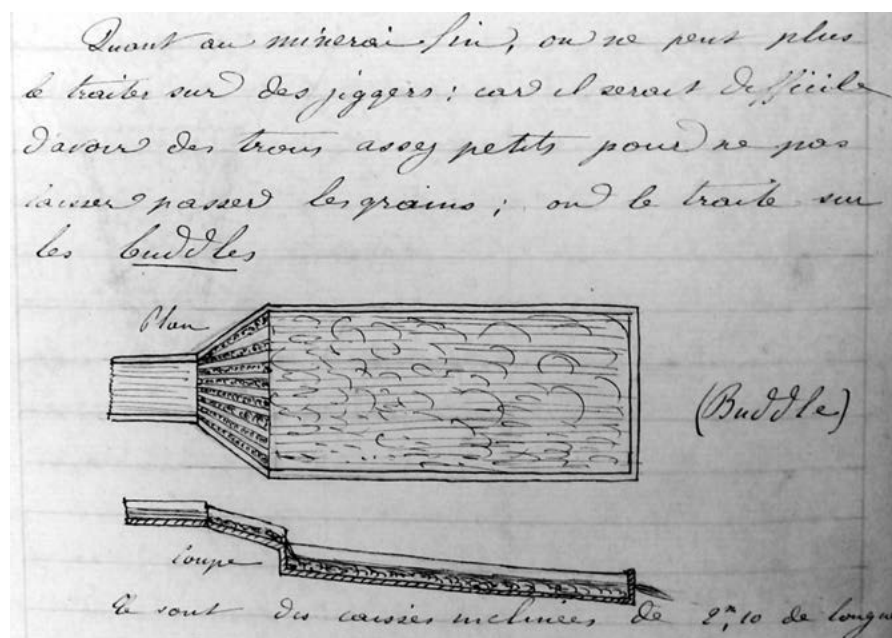 Quant au minerai fin, on ne peut plus
le traiter sur des jiggers ; car il serait difficile
d'avoir des trous assez petits pour ne pas
laisser passer les grains ; on le traite sur
les buddles
Plan
(Buddle)
Coupe
Ce sont des caisses inclinées de 2m,10 de longue